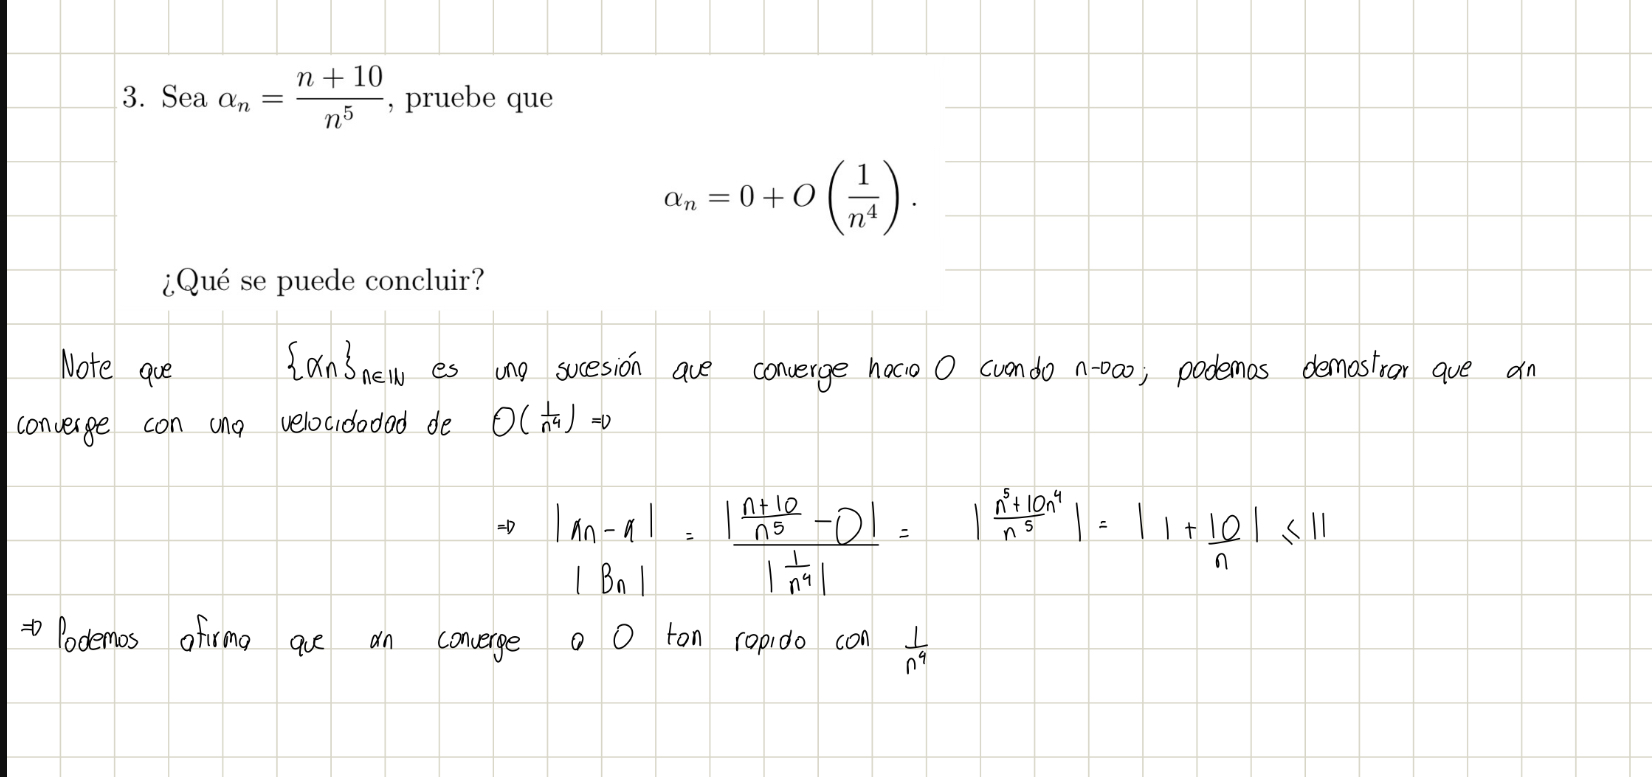 3. Sea αₙ = (n + 10)/n⁵, pruebe que
αₙ = 0 + O(1/n⁴).
¿Qué se puede concluir?
Note que {αn}n∈ℕ es una sucesión que converge hacia 0 cuando n→∞; podemos demostrar que αn
converge con una velocidadad de O(1/n⁴) ⇒
⇒ |αn - α| / |Bn| = |(n+10)/n⁵ - 0| / |1/n⁴| = |(n⁵ + 10n⁴)/n⁵| = |1 + 10/n| ≤ 11
⇒ Podemos afirma que αn converge a 0 tan rapido con 1/n⁴